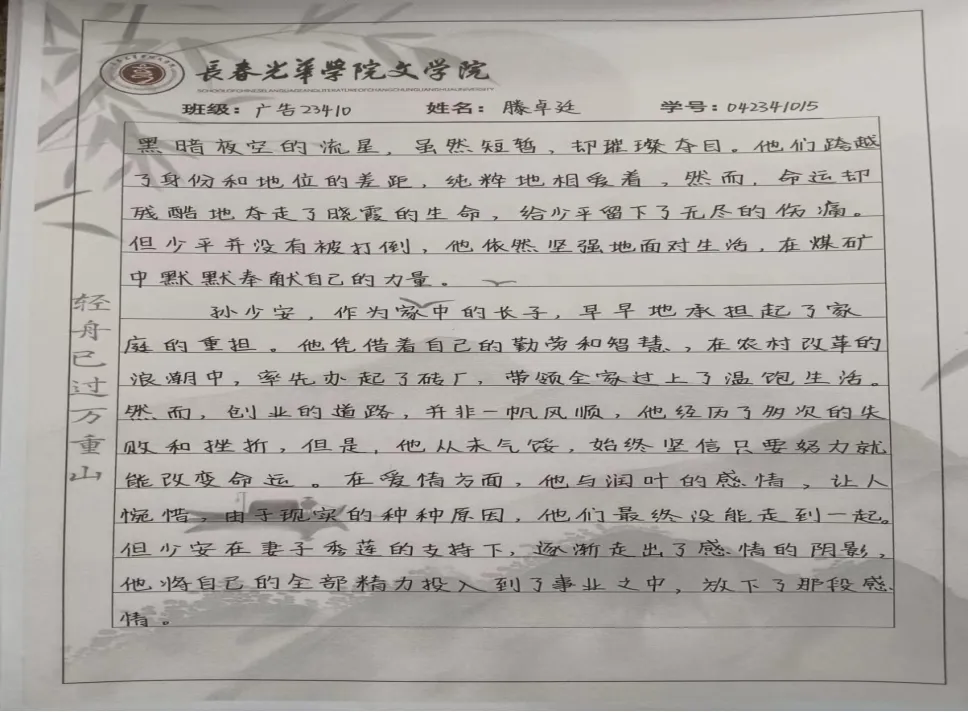 長春光華學院文学院
班级：广告23410 姓名：滕卓廷 学号：042341015
黑暗夜空的流星，虽然短暂，却璀璨夺目。他们跨越
了身份和地位的差距，纯粹地相爱着，然而，命运却
残酷地夺走了晓霞的生命，给少平留下了无尽的伤痛。
但少平并没有被打倒，他依然坚强地面对生活，在煤矿
中默默奉献自己的力量。
孙少安，作为家中的长子，早早地承担起了家
庭的重担。他凭借着自己的勤劳和智慧，在农村改革的
浪潮中，率先办起了砖厂，带领全家过上了温饱生活。
然而，创业的道路，并非一帆风顺，他经历了多次的失
败和挫折，但是，他从未气馁，始终坚信只要努力就
能改变命运。在爱情方面，他与润叶的感情，让人
惋惜，由于现实的种种原因，他们最终没能走到一起。
但少安在妻子秀莲的支持下，逐渐走出了感情的阴影，
他将自己的全部精力投入到了事业之中，放下了那段感
情。
轻舟已过万重山